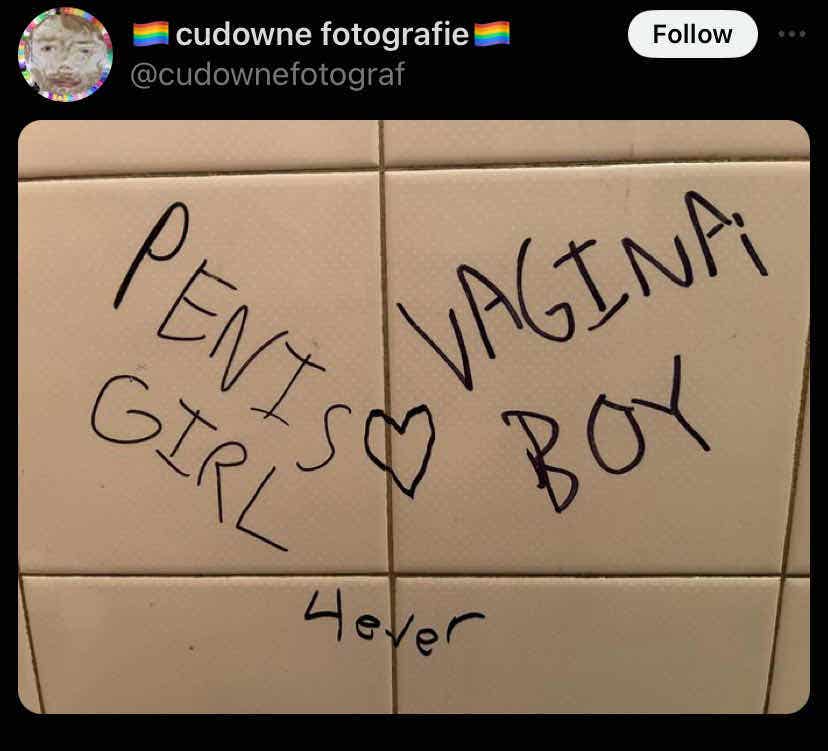 🏳️‍🌈cudowne fotografie🏳️‍🌈
@cudownefotograf
Follow
PENIS
GIRL
VAGINA
BOY
4ever